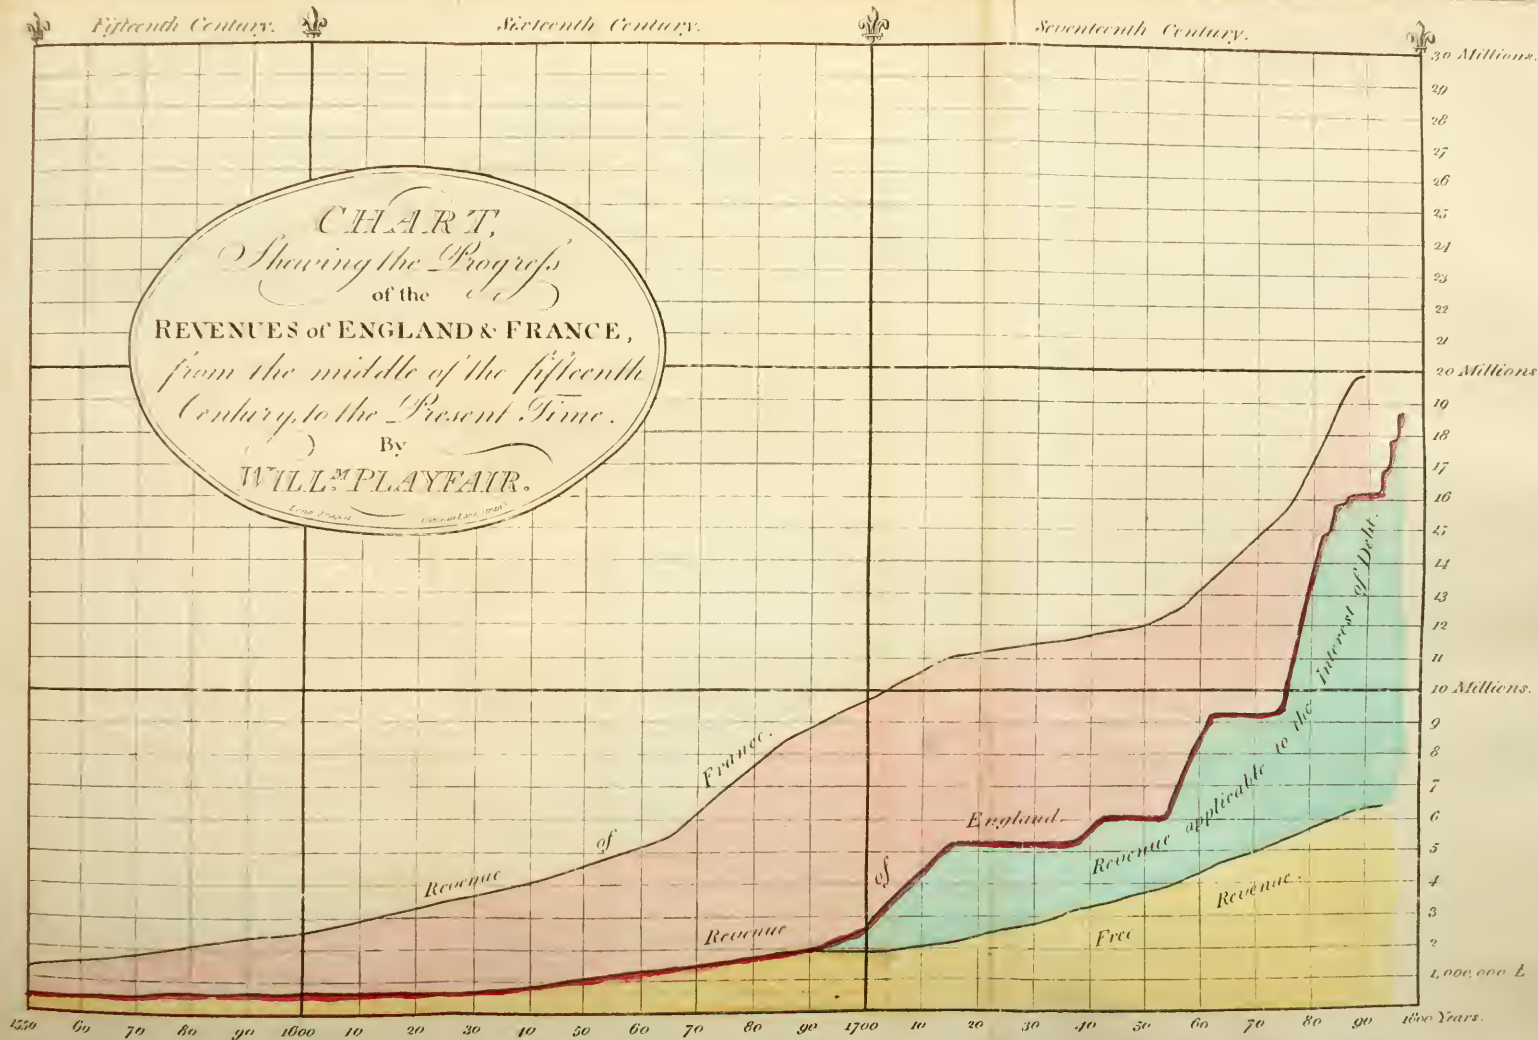 Fifteenth Century. Sixteenth Century. Seventeenth Century.
CHART,
Shewing the Progreſs
of the
REVENUES of ENGLAND & FRANCE,
from the middle of the fifteenth
Century, to the Present Time.
By
WILL.M PLAYFAIR.
30 Millions.
29
28
27
26
25
24
23
22
21
20 Millions
19
18
17
16
15
14
13
12
11
10 Millions.
9
8
7
6
5
4
3
2
1,000,000 L
Revenue of France.
Revenue of England.
Revenue applicable to the Interest of Debt.
Free Revenue.
1550 60 70 80 90 1600 10 20 30 40 50 60 70 80 90 1700 10 20 30 40 50 60 70 80 90 1800 Years.